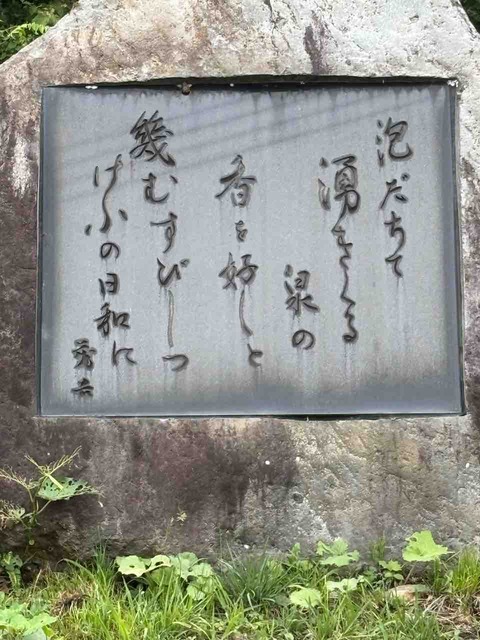 泡だちて
湧きくる
泉の
香を好しと
幾むすびしつ
けふの日和に
茂吉